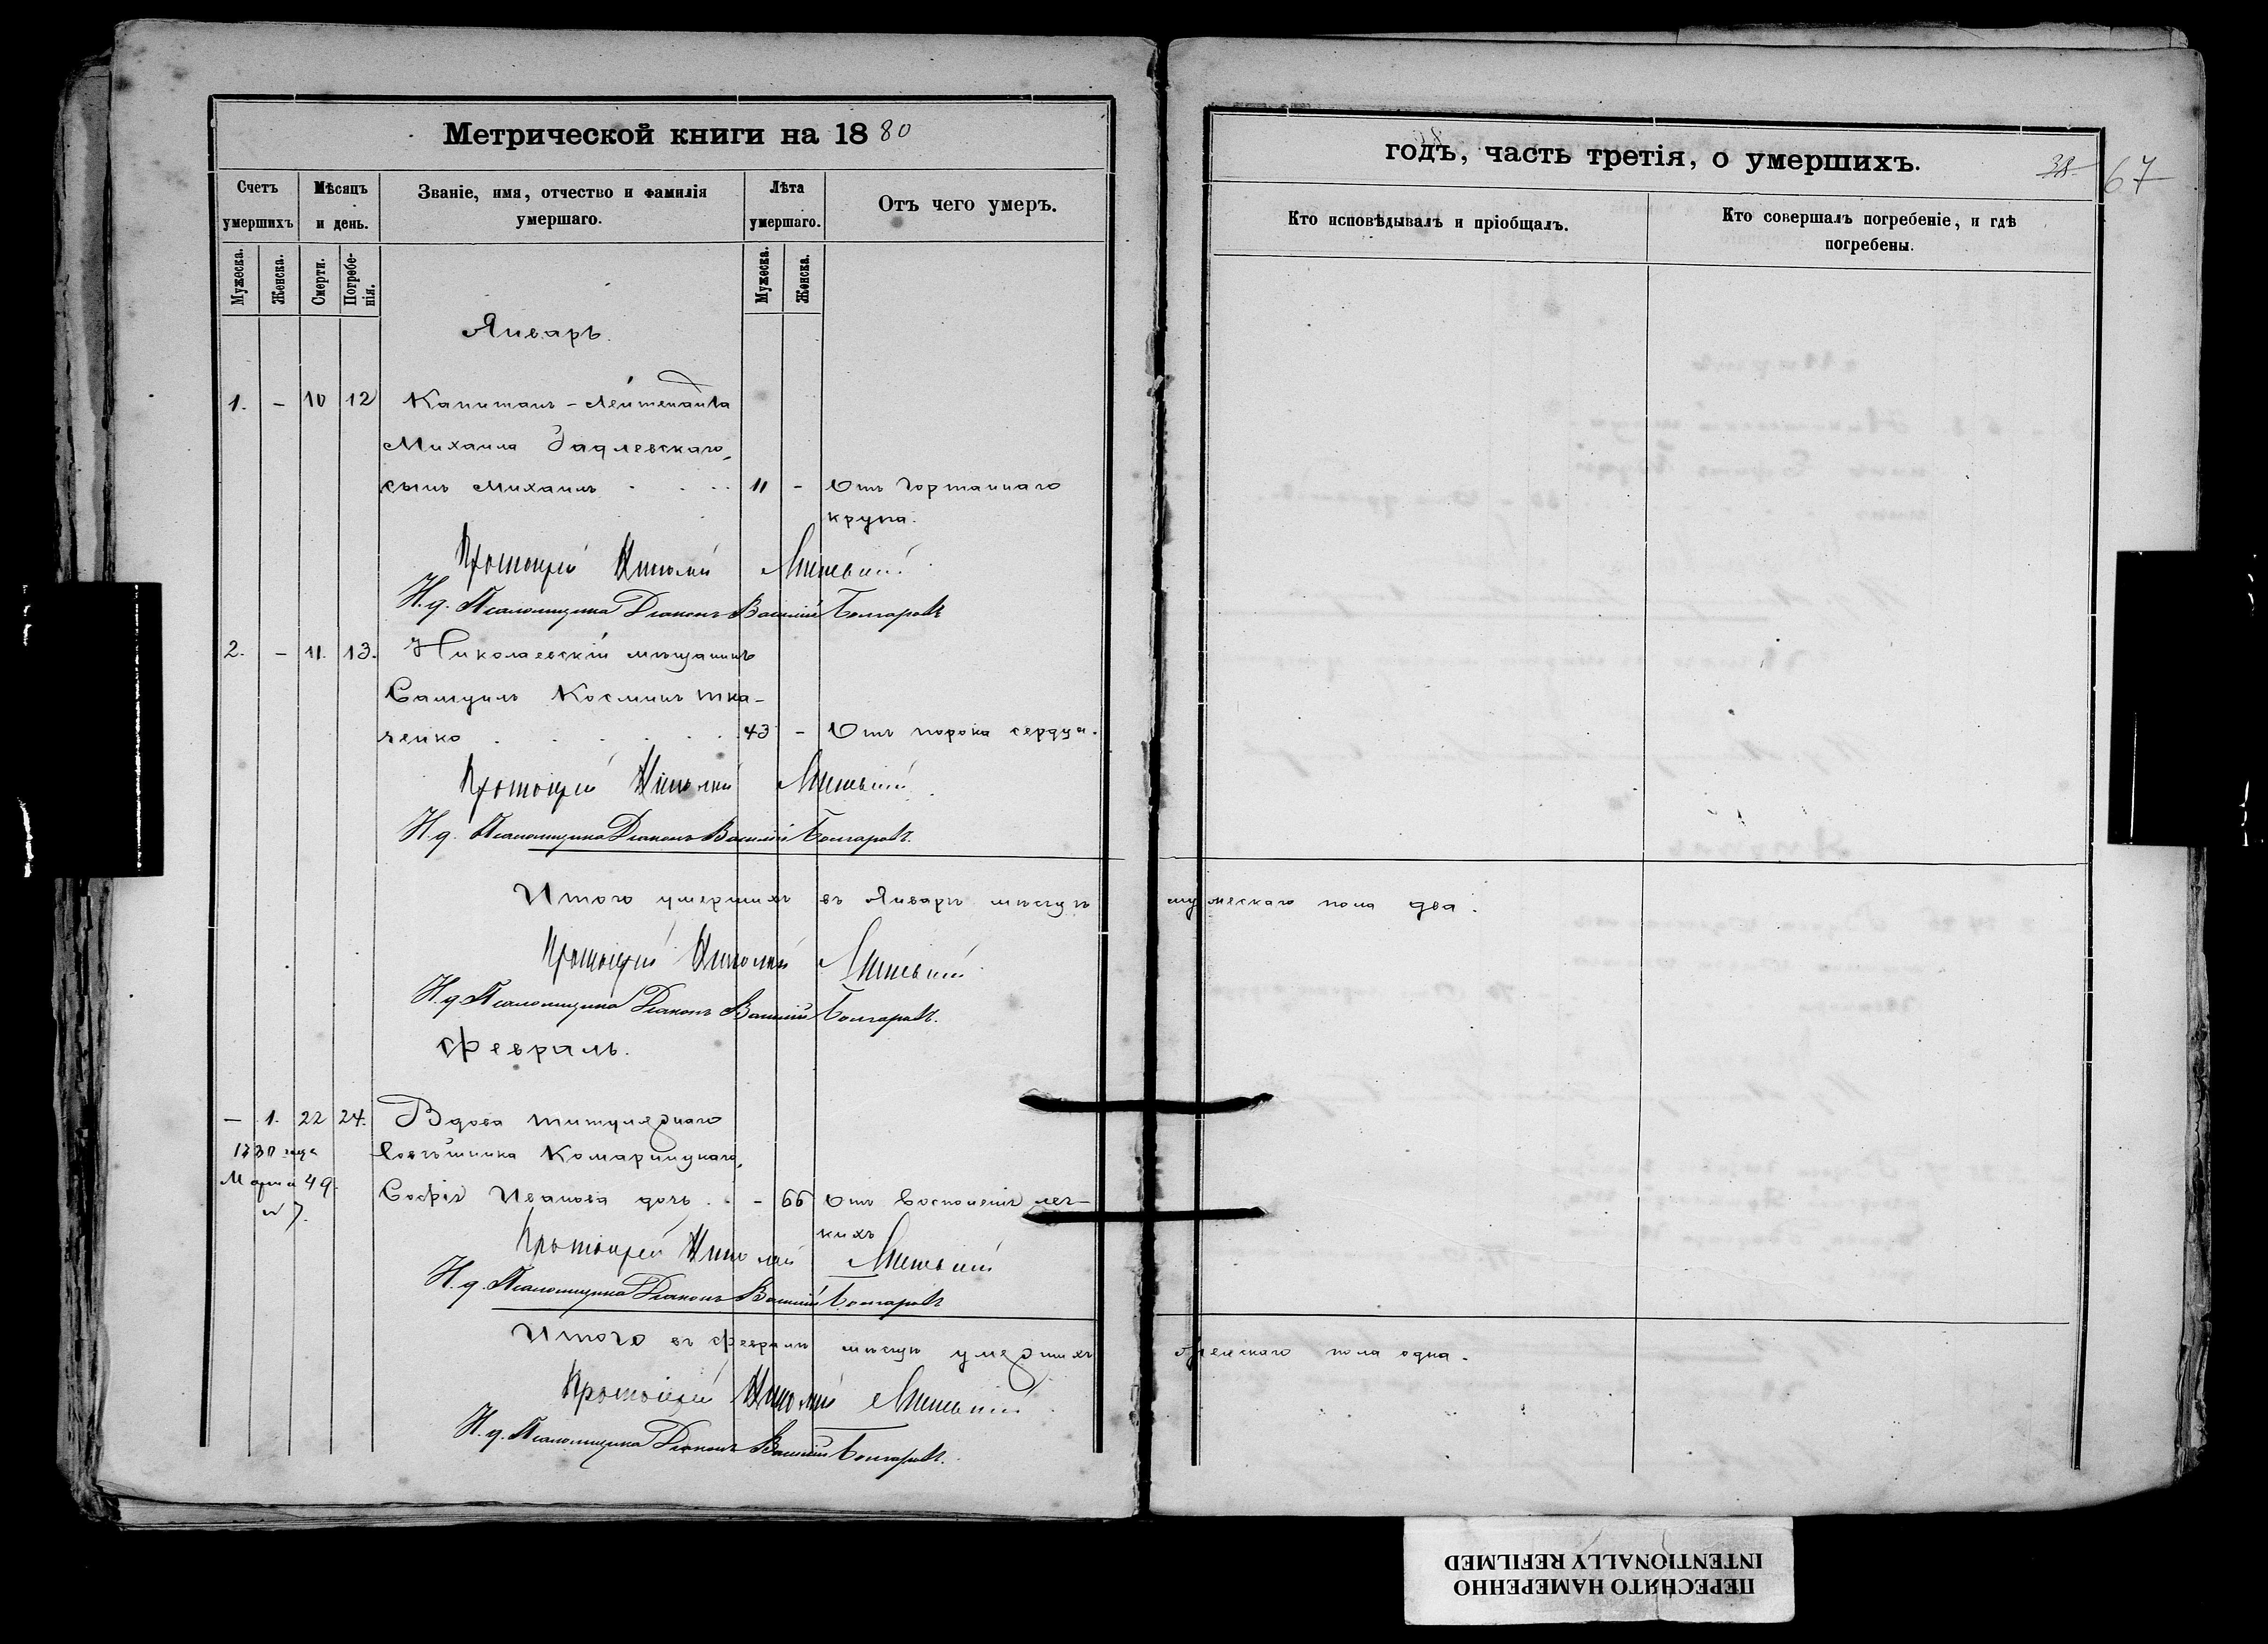 Метрической книги на 1880
годъ, часть третія, о умершихъ.
38 67
Счетъ умершихъ
Мѣсяцъ и день.
Званіе, имя, отчество и фамилія умершаго.
Лѣта умершаго.
Отъ чего умеръ.
Кто исповѣдывалъ и пріобщалъ.
Кто совершалъ погребеніе, и гдѣ погребены.
Мужеска. Женска. Смерти. Погребенія. Мужеска. Женска.
Январь.
1. - 10 12 Капитанъ-Лейтенанта
Михаила Задлевскаго,
сынъ Михаилъ 11 - Отъ гортаннаго
крупа.
Протоіерей Николай
И.д. Псаломщика Діаконъ Василій Болгаровъ
2. - 11. 13. Николаевскій мѣщанинъ
Самуилъ Косминъ Тка-
ченко 43 - Отъ порока сердца.
Протоіерей Николай
И.д. Псаломщика Діаконъ Василій Болгаровъ.
Итого умершихъ въ Январѣ мѣсяцѣ мужескаго пола два.
Протоіерей Николай
И.д. Псаломщика Діаконъ Василій Болгаровъ.
Февраль.
- 1. 22 24. Вдова титулярнаго
Совѣтника Комарницкаго,
Марта 49.
Софія Иванова дочь - 66 Отъ восполенія лег-
№ 7.
кихъ
Протоіерей Николай
И.д. Псаломщика Діаконъ Василій Болгаровъ
Итого въ Февралѣ мѣсяцѣ умершихъ женскаго пола одна.
Протоіерей Николай
И.д. Псаломщика Діаконъ Василій Болгаровъ.
ПЕРЕСНЯТО НАМЕРЕННО
INTENTIONALLY REFILMED